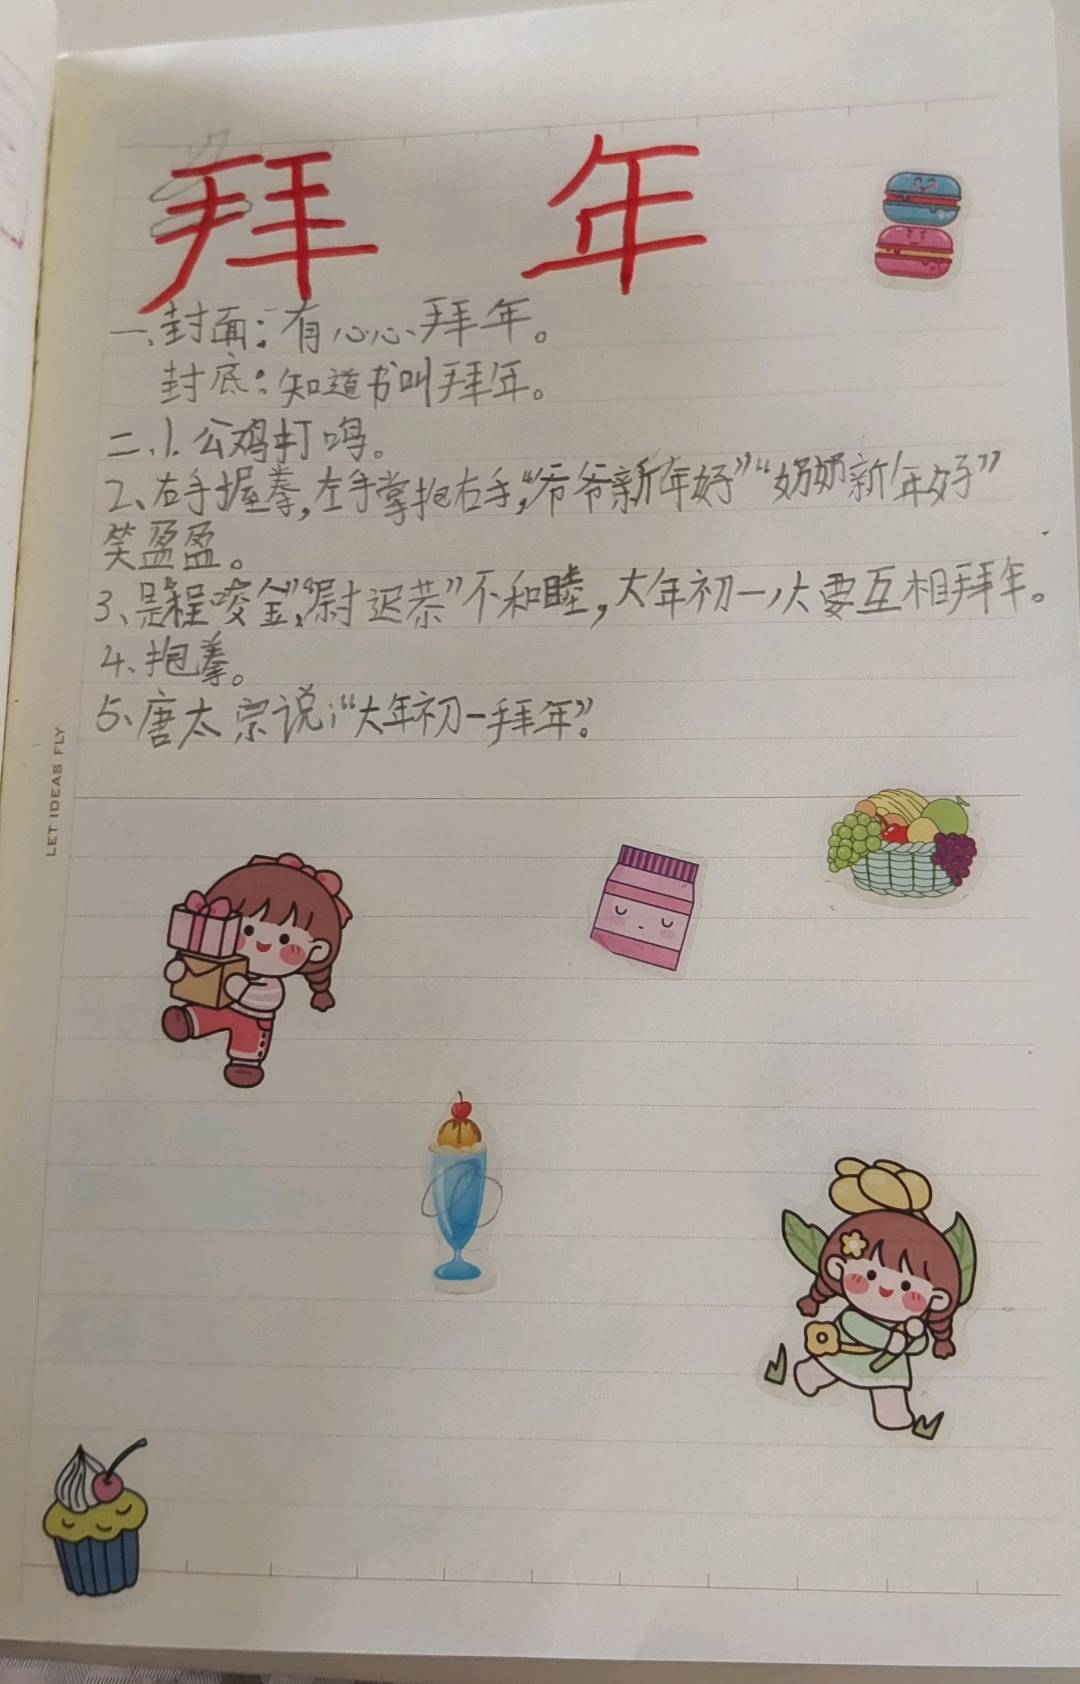 拜 年
一、封面:有心心拜年。
封底:知道书叫拜年。
二.1.公鸡打鸣。
2、右手握拳,左手掌抱右手,“爷爷新年好”“奶奶新年好”
笑盈盈。
3、程咬金”,“尉迟恭”不和睦,大年初一,大要互相拜年。
4、抱拳。
5、唐太宗说:“大年初一拜年”。
LET IDEAS FLY